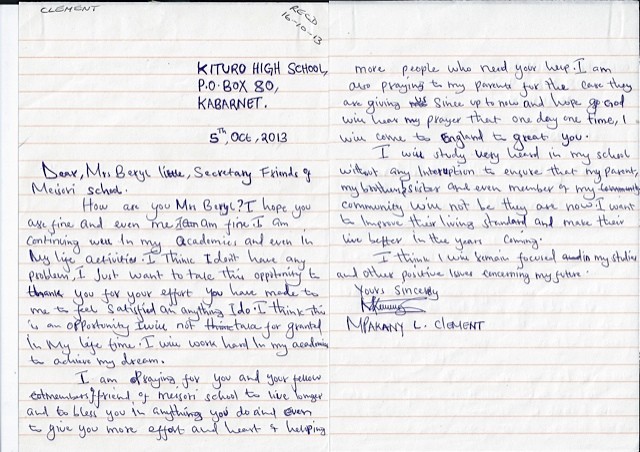 CLEMENT
RECD
16-10-13
KITURO HIGH SCHOOL,
P.O. BOX 80,
KABARNET.
5TH, OCT, 2013
Dear, Mrs Beryl little, Secretary Friends of
Meisori school.
How are you Mrs Beryl? I hope you
are fine and even me I am fine. I am
continuing well In my academics and even in
My life activities. I Think I don't have any
problem, I just want to take this opportunity to
thank you for your effort you have made to
me to feel satisfied an anything I do. I think this
is an opportunity I will not take for granted
In My life time. I will work hard In my academic
to achieve my dream.
I am Praying for you and your fellow
members friend of meisori school to live longer
and to bless you in anything you do and even
to give you more effort and heart of helping
more people who need your help. I am
also praying to my parents for the care they
are giving me since up to now and hope god
will hear my prayer that one day one time, I
will come to England to greet you.
I will study very heard in my school
without any Interuption to ensure that my parent,
my brother, sister and even member of my
community will not be they are now I want
to Improve their living standard and make their
live better in the years coming.
I think I will remain focused in my studies
and other positive Issues concerning my future.
Yours Sincerely
MPAKANY L. CLEMENT